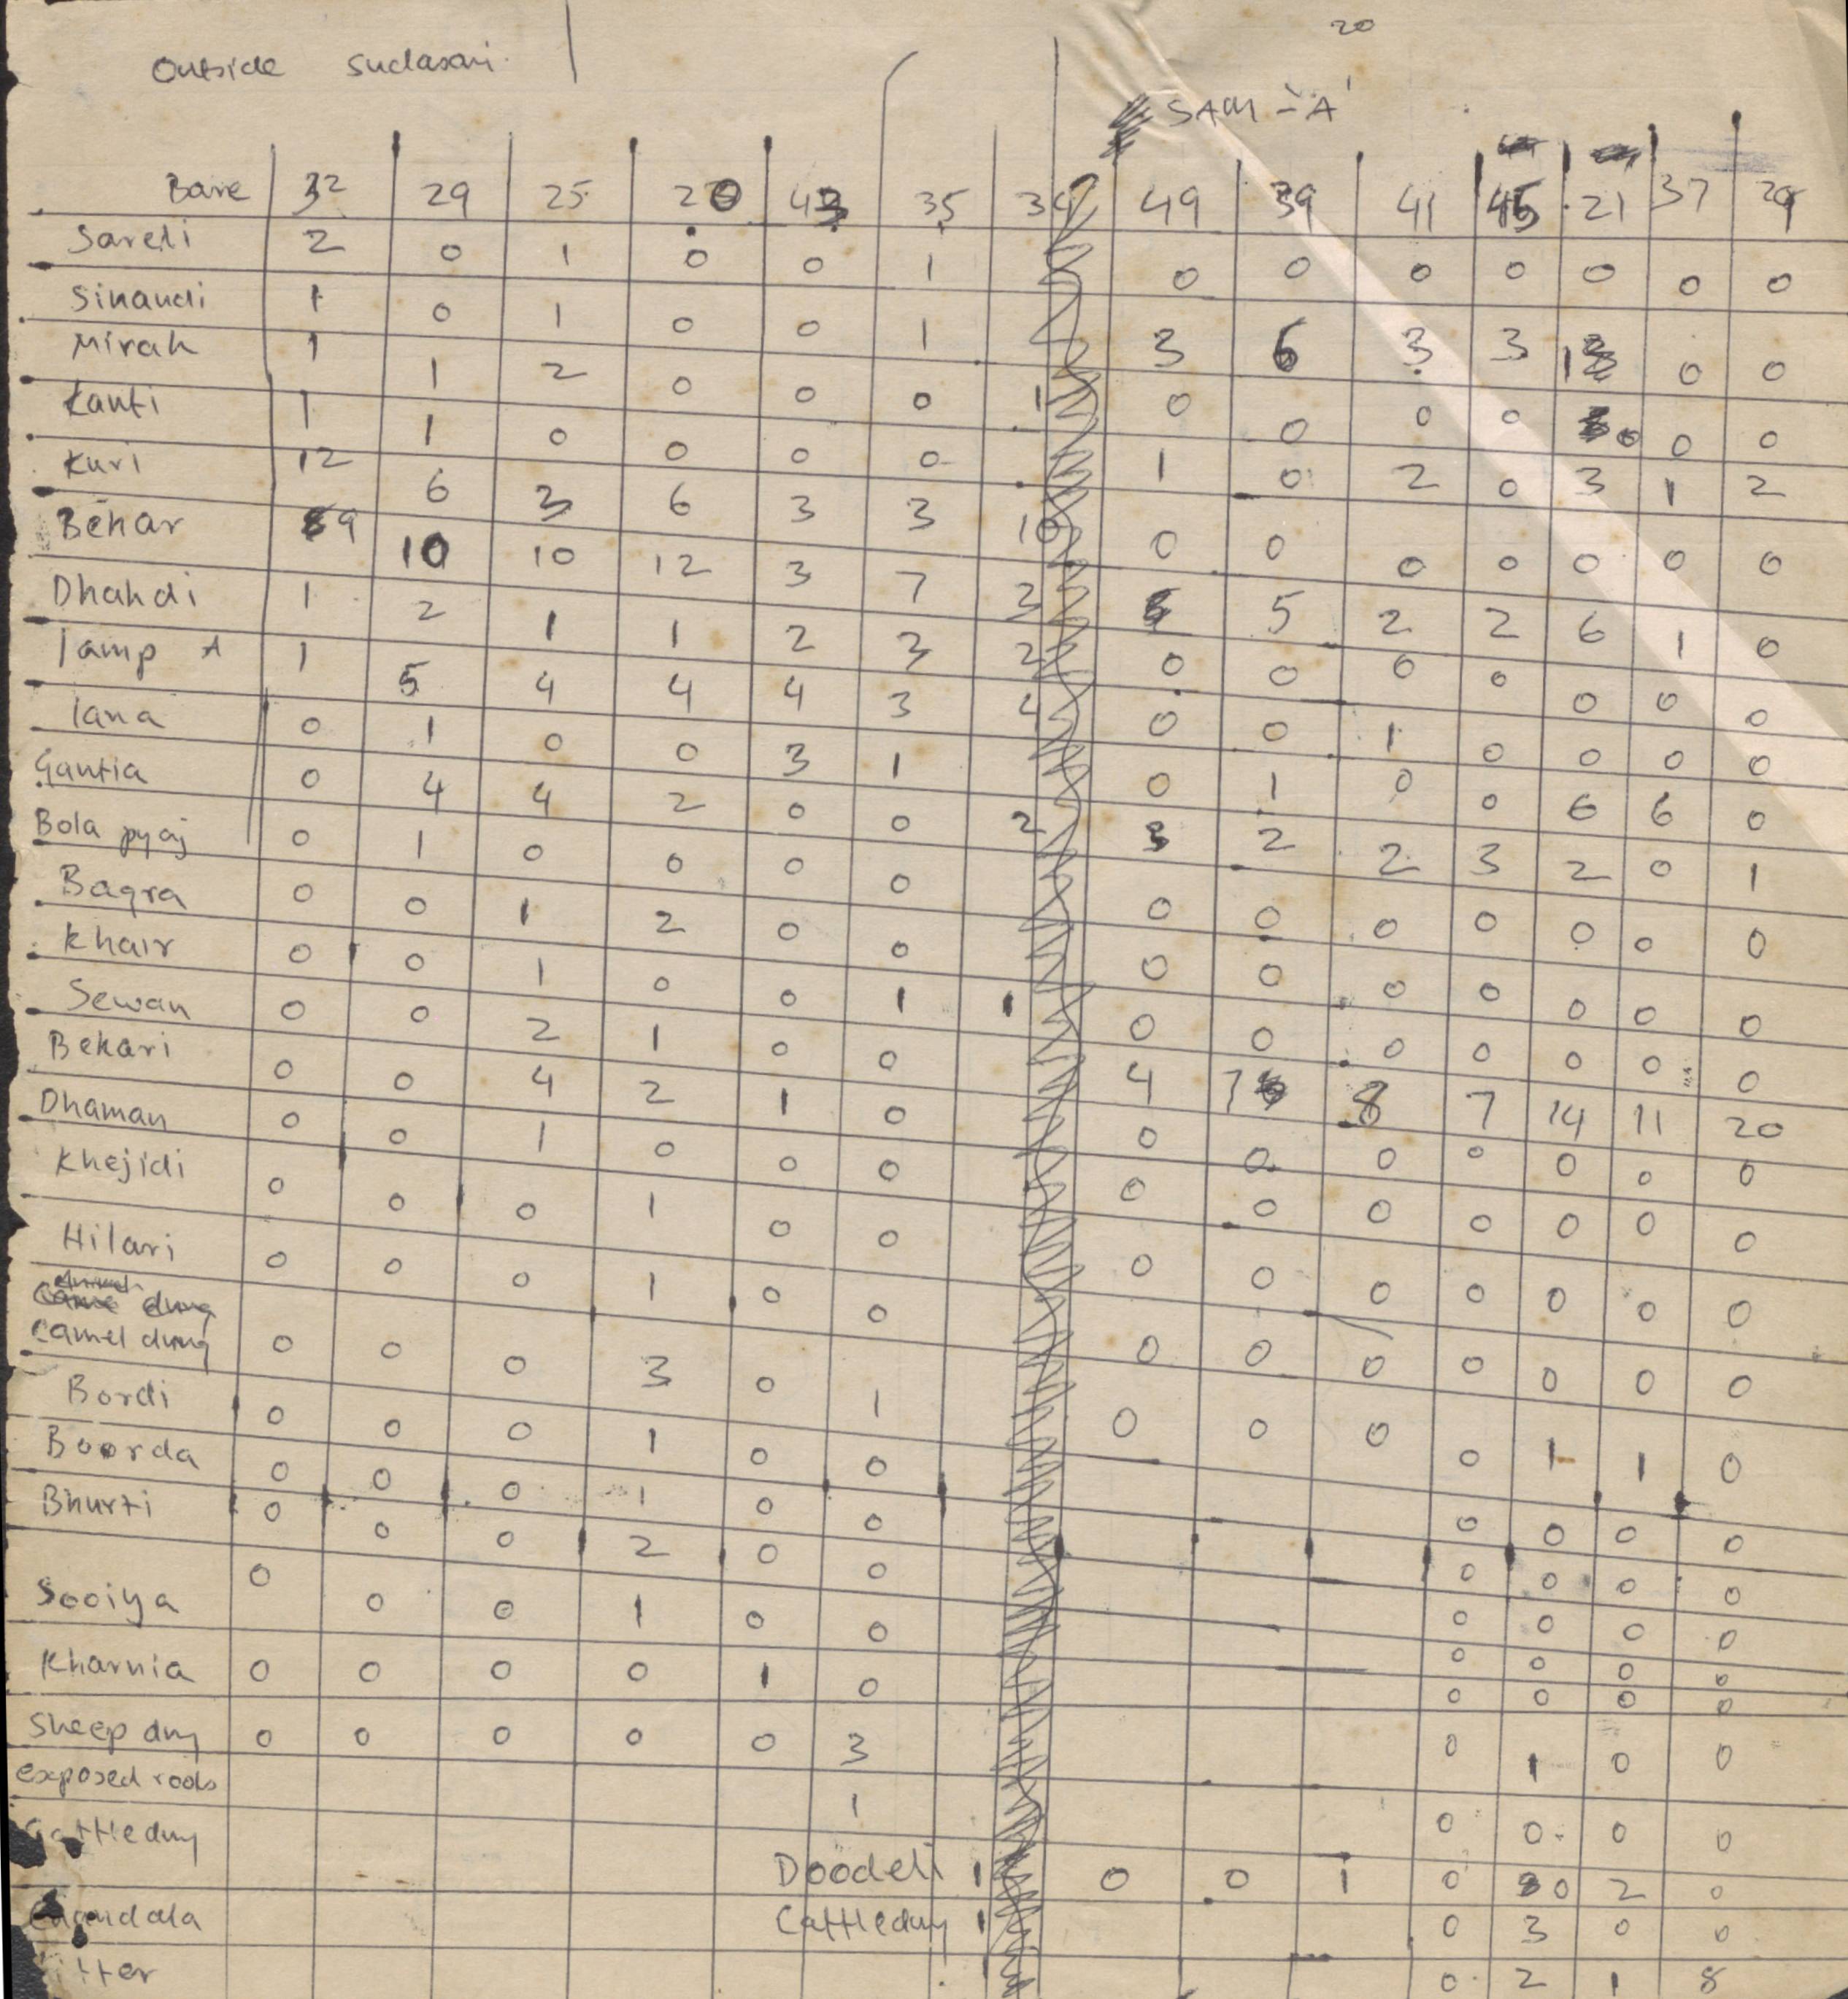 20
Outside sudasari
SAM - 'A'
Bare 32 29 25 20 43 35 34 49 39 41 45 21 37 29
Sareli 2 0 1 0 0 1 0 0 0 0 0 0 0
Sinaudi 1 0 1 0 0 1 3 6 3 3 13 0 0
Mirah 1 1 2 0 0 0 1 0 0 0 0 0 0 0
Kanti 1 1 0 0 0 0 1 0 2 0 3 1 2
Kuri 12 6 3 6 3 3 10 0 0 0 0 0 0 0
Behar 9 10 10 12 3 7 2 5 2 2 6 1 0
Dhahdi 1 2 1 1 2 3 2 0 0 0 0 0 0 0
lamp A 1 5 4 4 4 3 4 0 0 1 0 0 0 0
lana 0 1 0 0 3 1 0 1 0 0 6 6 0
Gantia 0 4 4 2 0 0 2 3 2 2 3 2 0 1
Bola pyaj 0 1 0 0 0 0 0 0 0 0 0 0 0
Bagra 0 0 1 2 0 0 0 0 0 0 0 0 0
Khair 0 0 1 0 0 1 1 0 0 0 0 0 0 0
Sewan 0 0 2 1 0 0 4 8 7 14 11 20
Bekari 0 0 4 2 1 0 0 0 0 0 0 0 0
Dhaman 0 0 1 0 0 0 0 0 0 0 0 0 0
Khejidi 0 0 0 1 0 0 0 0 0 0 0 0 0
Hilari 0 0 0 1 0 0 0 0 0 0 0 0 0
dung
Camel dung 0 0 0 3 0 1 0 0 0 0 1 1 0
Bordi 0 0 0 1 0 0 0 0 0 0
Boorda 0 0 0 1 0 0 0 0 0 0
Bhurti 0 0 0 2 0 0 0 0 0 0
Sooiya 0 0 0 1 0 0 0 0 0 0
Kharnia 0 0 0 0 1 0 0 0 0 0
Sheep dung 0 0 0 0 0 3 0 1 0 0
exposed roots 1 0 0 0 0
Cattle dung
Doodeli 1 0 0 1 0 0 2 0
Cattle dung 1 0 3 0 0
0 2 1 8